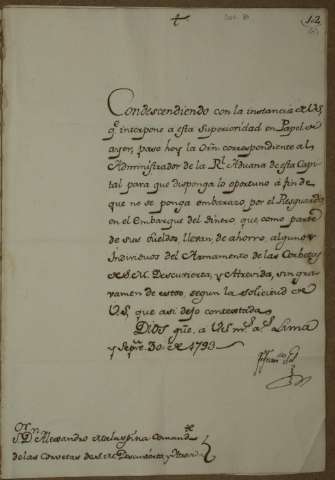 12
Condescendiendo con la instancia de V.S.
qe. interpone a esta Superioridad en Papel de
ayer, paso hoy la Orñ correspondiente al
Administrador de la Rl. Aduana de esta Capi-
tal para que disponga lo oportuno á fin de
que no se ponga embarazo por el Resguardo
en el Embarque del dinero, que como parte
de sus sueldos llevan de ahorro, algunos
Individuos del Armamento de las Corbetas
de S.M. Descuvierta, y Atrevida, sin gra-
vamen de estos, segun la solicitud de
V.S. que asi dejo contestada.
Dios gue. a V.S. ms. as. Lima
y Sepre. 30. de 1793
S.D. Alexandro Malaspina Comande.
de las Corvetas de S.M. Descuvierta y Atrevida